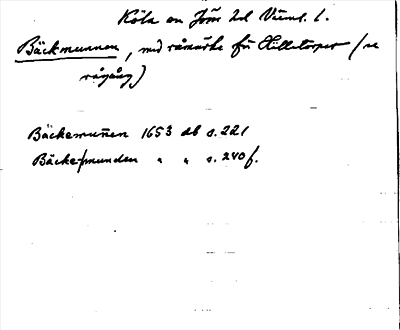 Köla sn Jösse hd Värml. l.
Bäckmunnen, nid råmärke för Hilletorpet (se
rågång)
Bäckemun̄en 1653 db s. 221
Bäckemunden " " s. 240 f.